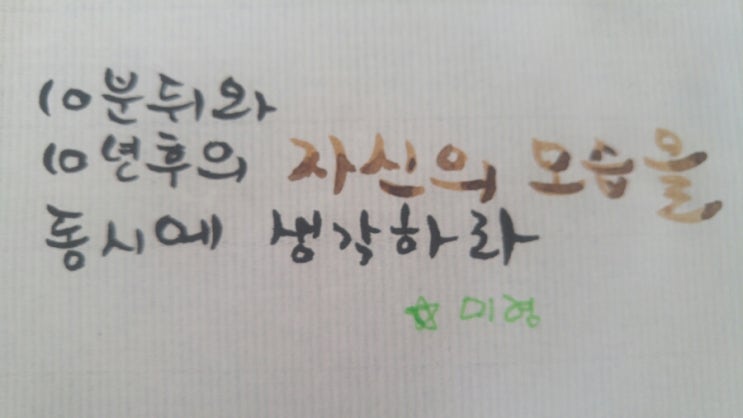 10분뒤와
10년후의 자신의 모습을
동시에 생각하라
☆ 미형